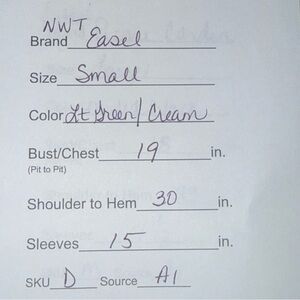 NWT
Brand Easel
Size Small
Color Lt Green/Cream
Bust/Chest 19 in.
(Pit to Pit)
Shoulder to Hem 30 in.
Sleeves 15 in.
SKU D Source A1